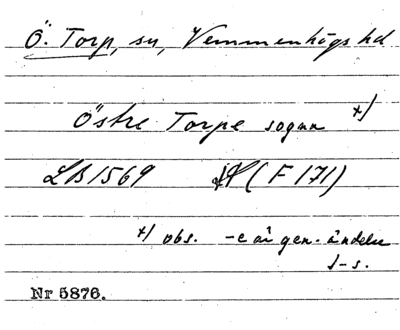 Ö. Torp, sn, Vemmenhögs hd
Östre Torpe sognn +)
LB 1569 (F 171)
+) obs. -e är gen.-ändelse
J-s.
Nr 5876.